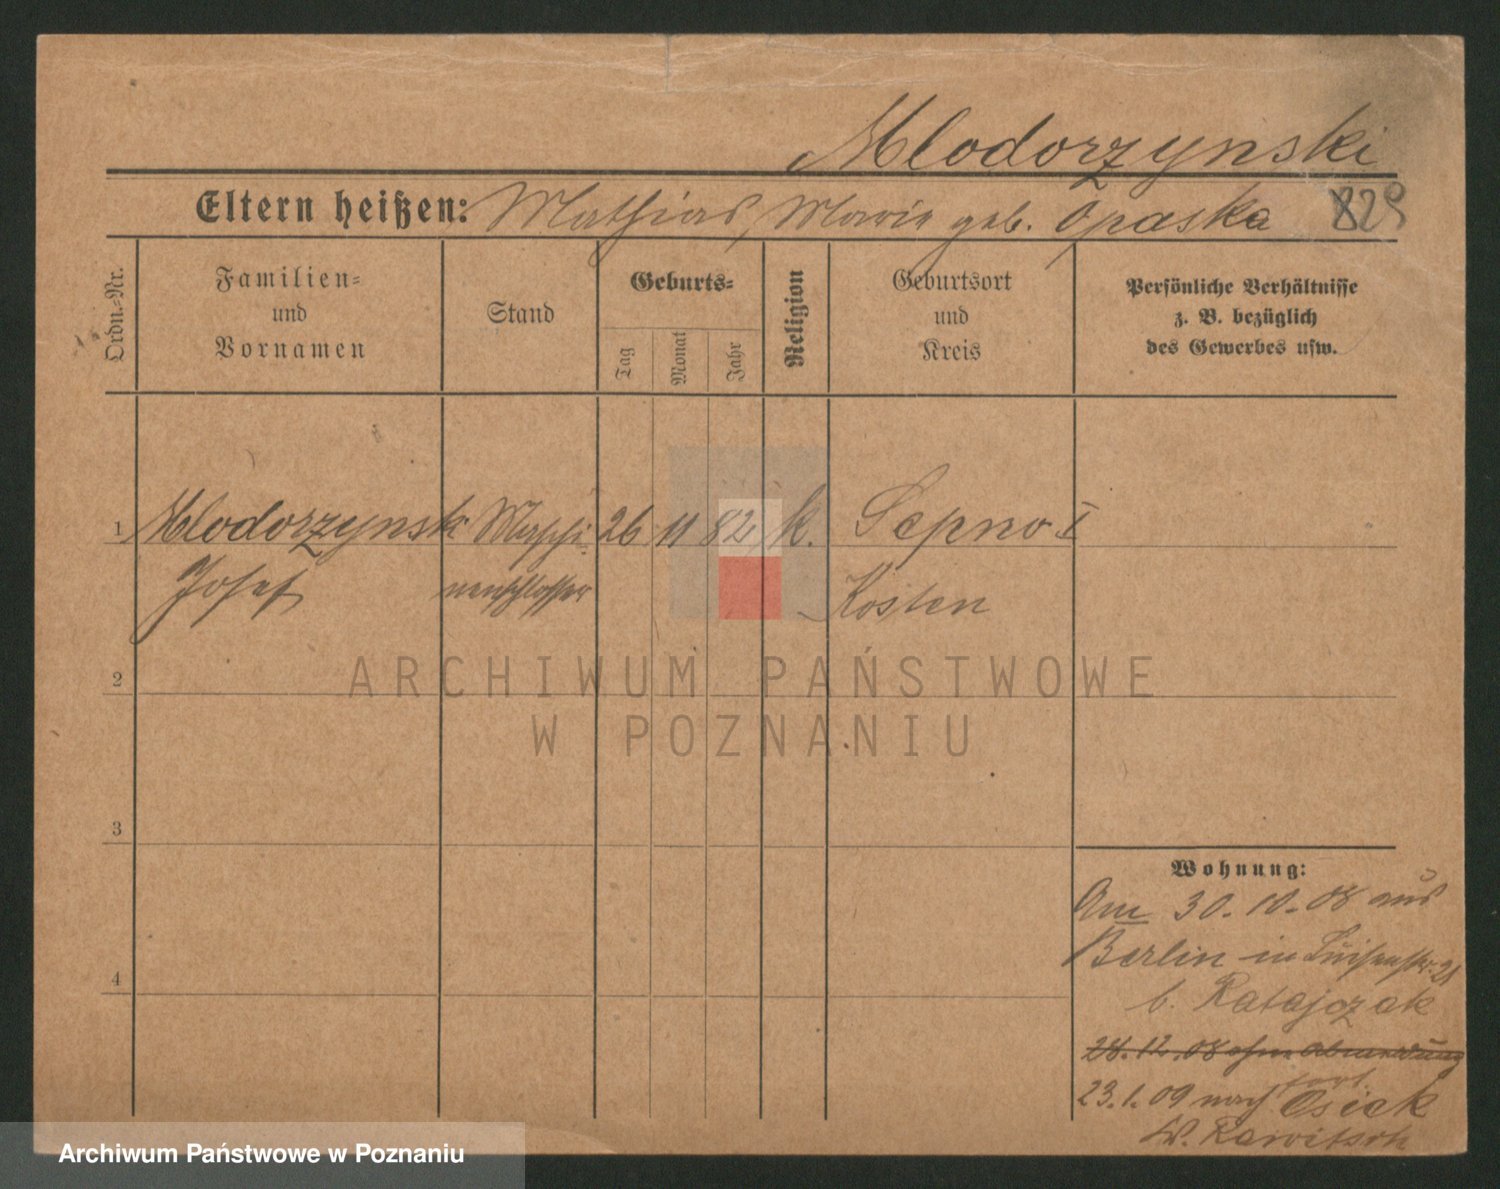 Mlodorzynski
Eltern heißen: Mathias, Marie geb. Opaska 829
Ordn.-Nr.
Familien-
und
Vornamen
Stand
Geburts-
Tag
Monat
Jahr
Religion
Geburtsort
und
Kreis
Persönliche Verhältnisse
z. B. bezüglich
des Gewerbes usw.
1 Mlodorzynski Maschi- 26 11 82 k. Sepno I
Josef nenschlosser Kosten
2
3
4
Wohnung:
Am 30.10.08 aus
Berlin in Luisenstr. 21
b. Ratajczak
28.12.08 ohne Abmeldung
fort.
23.1.09 nach Osiek
Kr. Rawitsch
ARCHIWUM PAŃSTWOWE
W POZNANIU
Archiwum Państwowe w Poznaniu